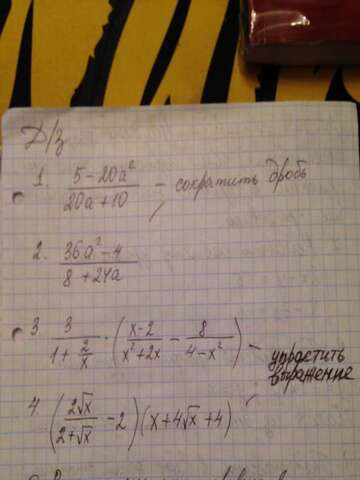 Д/з
1. (5-20a²)/(20a+10) - сократить дробь
2. (36a²-4)/(8+24a)
3 3/(1+2/x) · ((x-2)/(x²+2x) - 8/(4-x²)) - упростить выражение
4. (2√x/(2+√x) - 2)(x+4√x+4)